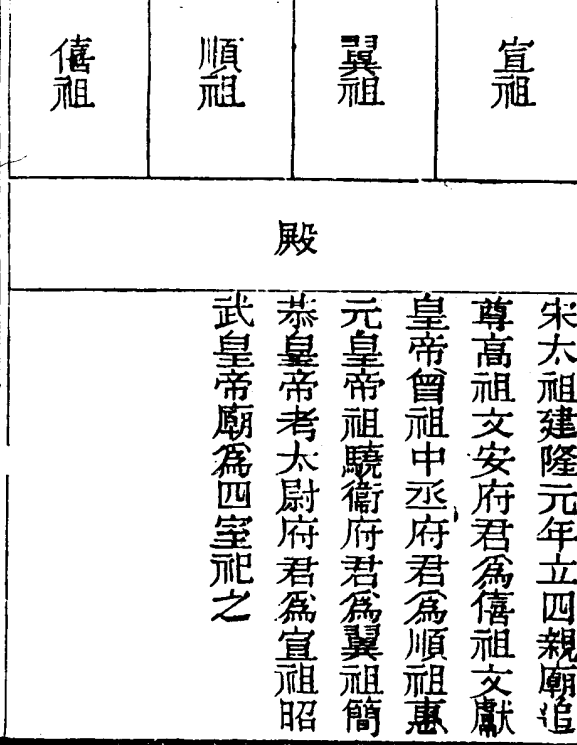 宣祖
翼祖
順祖
僖祖
殿
宋太祖建隆元年立四親廟追
尊高祖文安府君爲僖祖文獻
皇帝曾祖中丞府君爲順祖惠
元皇帝祖驍衞府君爲翼祖簡
恭皇帝考太尉府君爲宣祖昭
武皇帝廟爲四室祀之